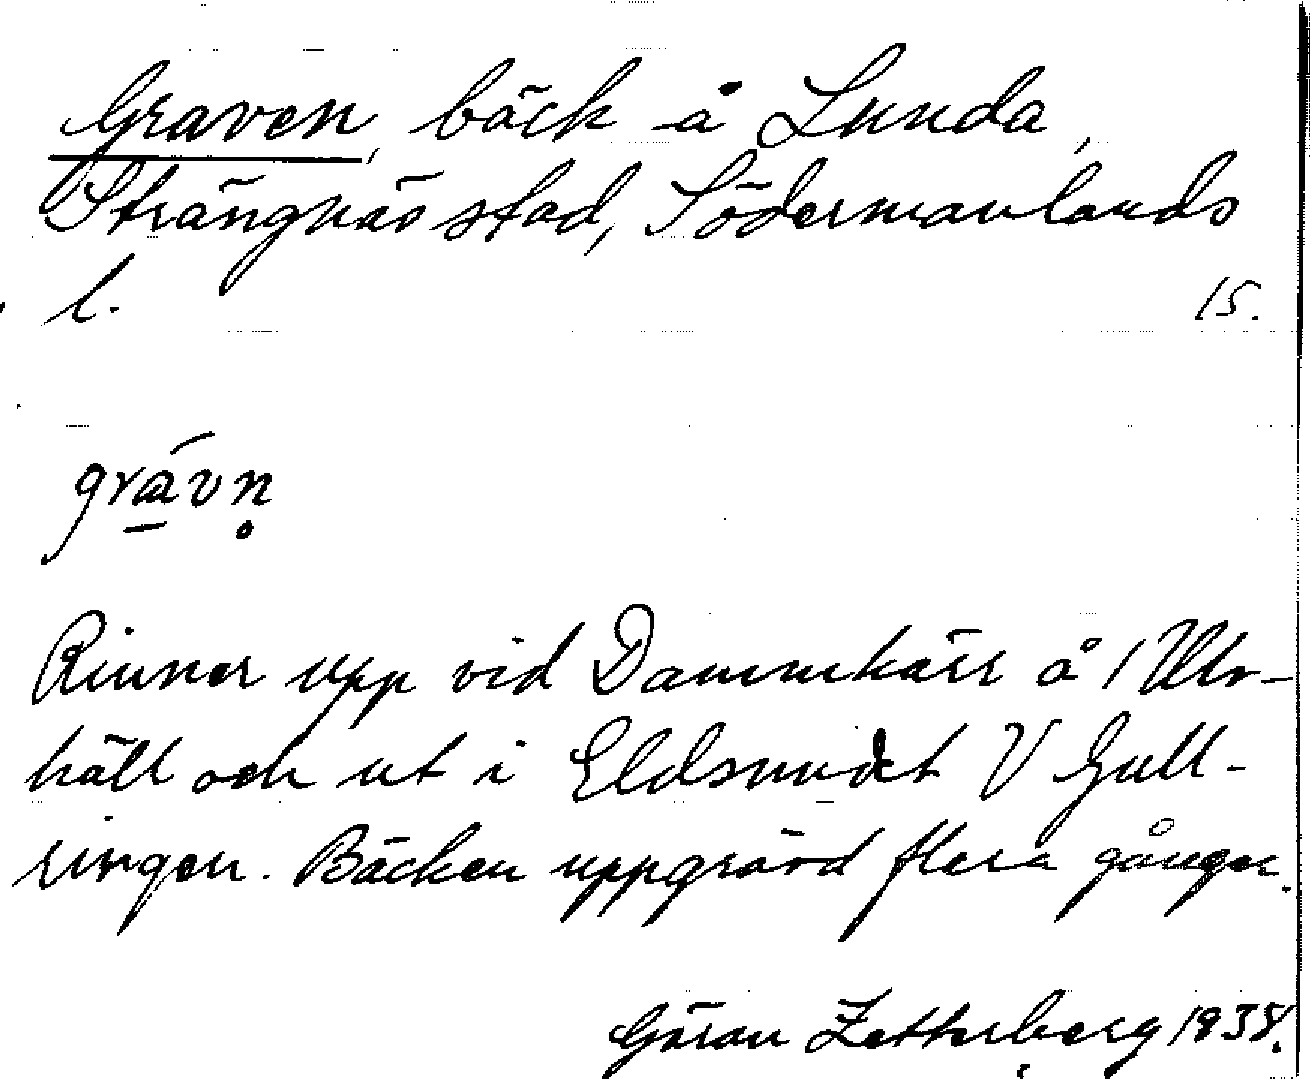 Graven, bäck å Lunda,
Strängnäs stad, Södermanlands
l. 15.
grávn̥
Rinner upp vid Dammkärr å / Ulv-
häll och ut i Eldsundet V Gull-
ringen. Bäcken uppgrävd flera gånger.
Göran Zetterberg 1935.